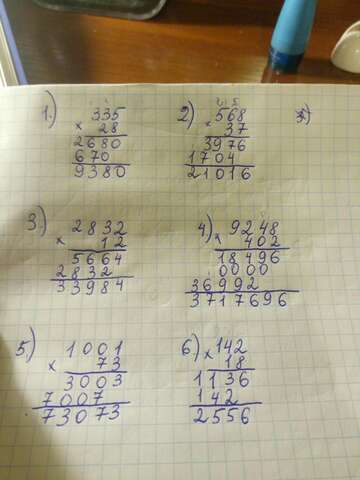 1.) 335
× 28
2680
670
9380
2) 568
× 37
3976
1704
21016
3.) 2832
× 12
5664
2832
33984
4) 9248
× 402
18496
0000
36992
3717696
5.) 1001
× 73
3003
7007
73073
6.) × 142
18
1136
142
2556